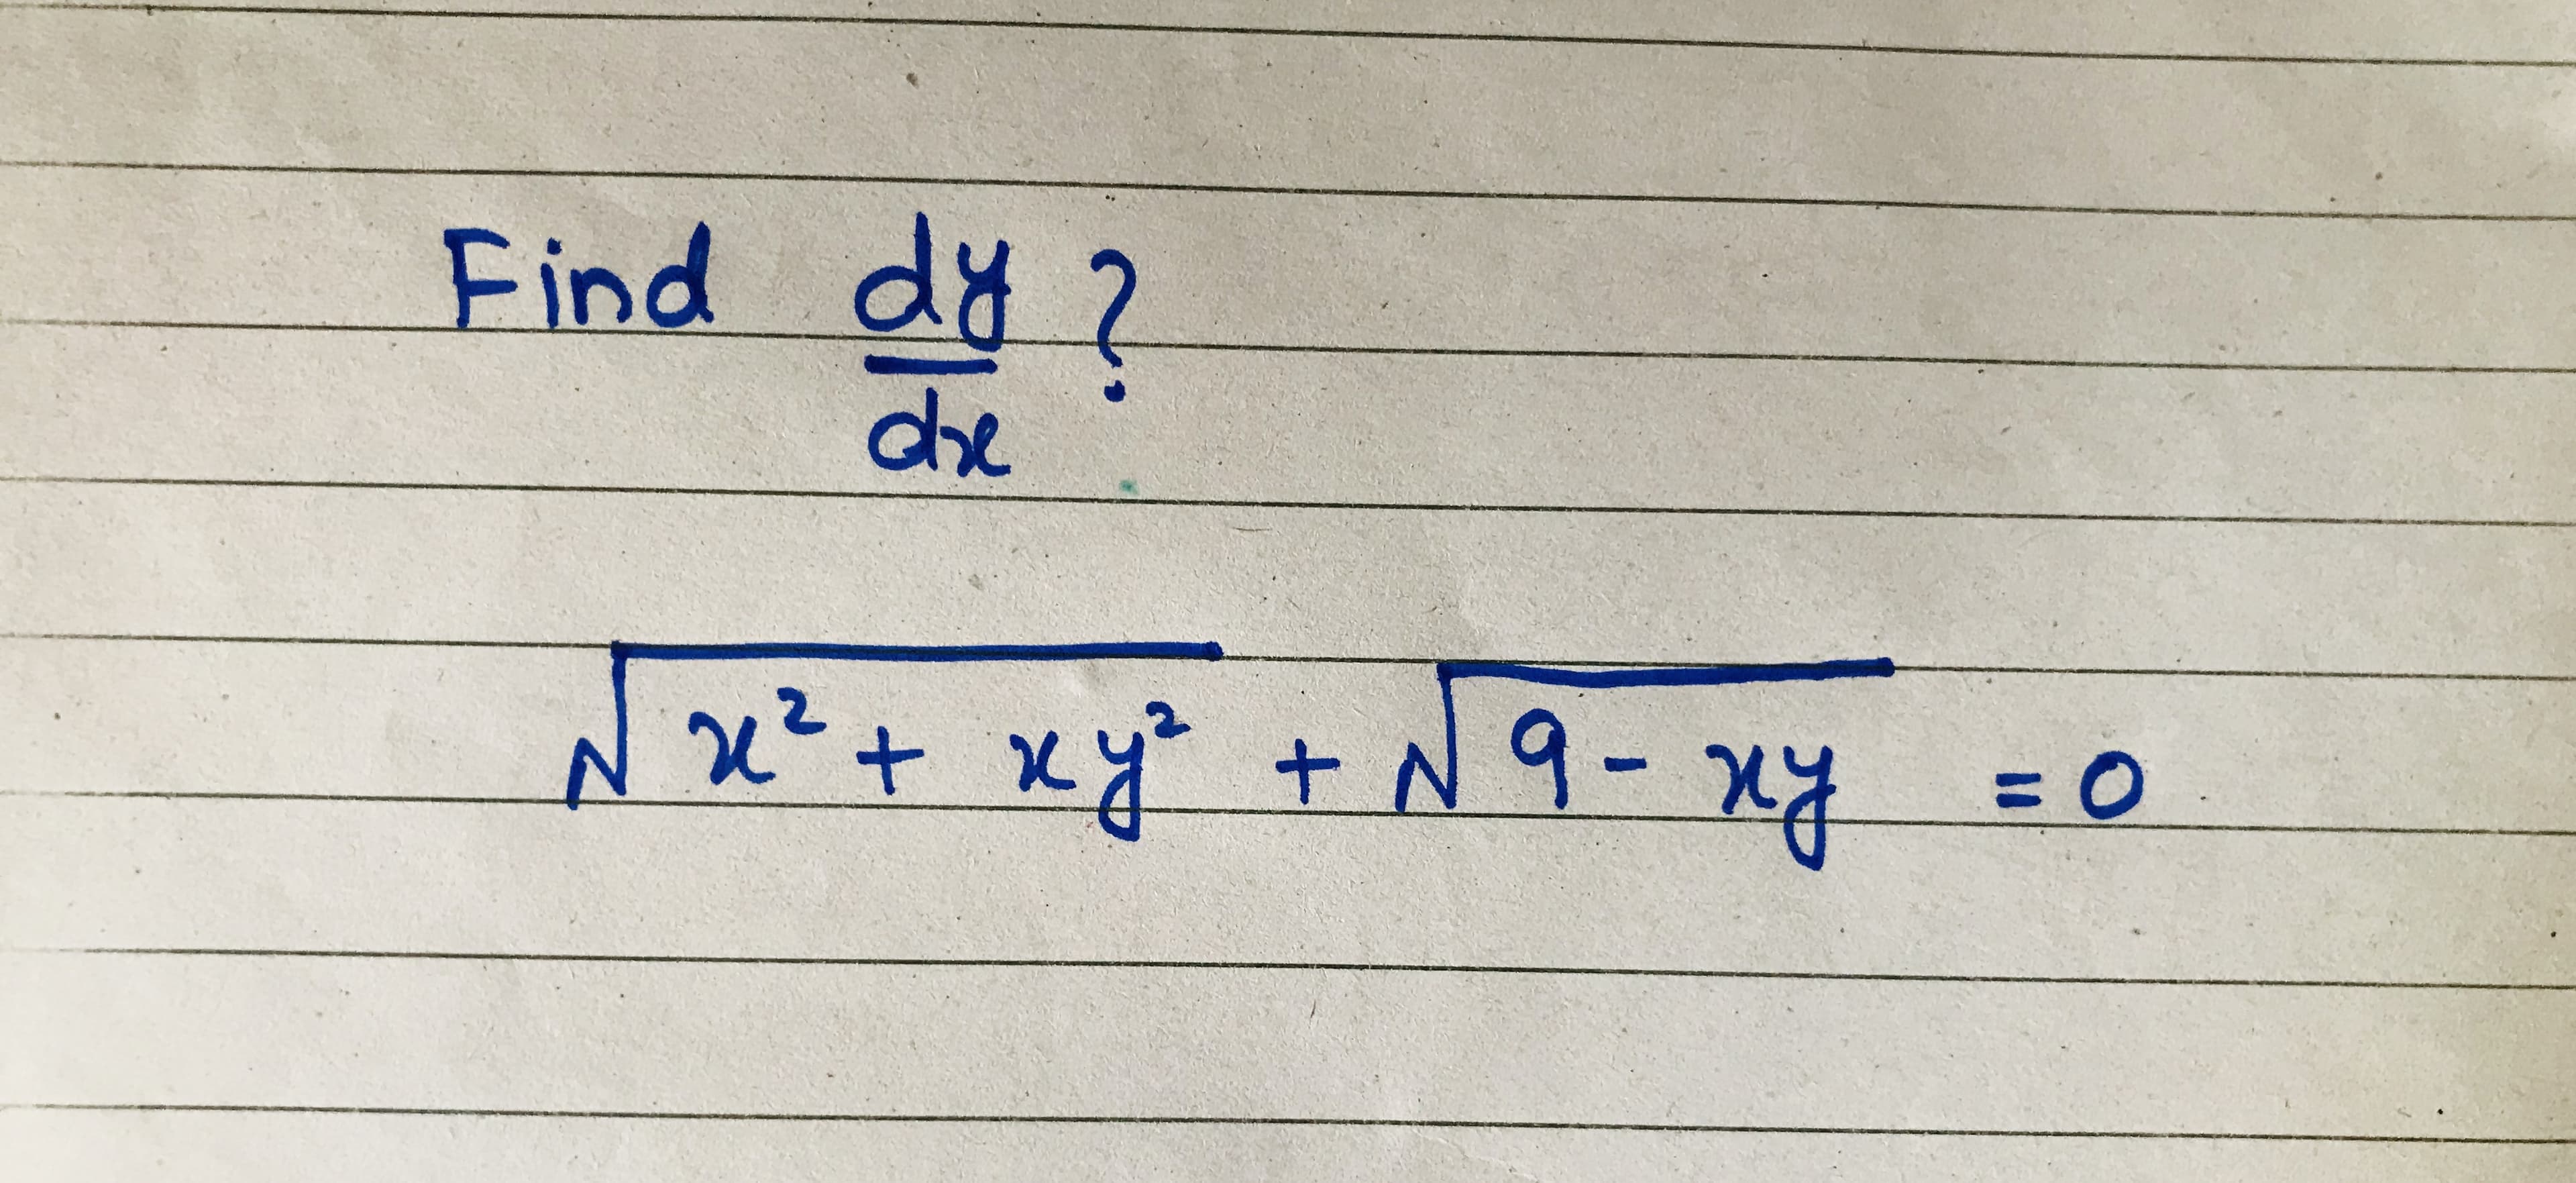 Find dy/dx ?
√(x² + xy²) + √(9 - xy) = 0